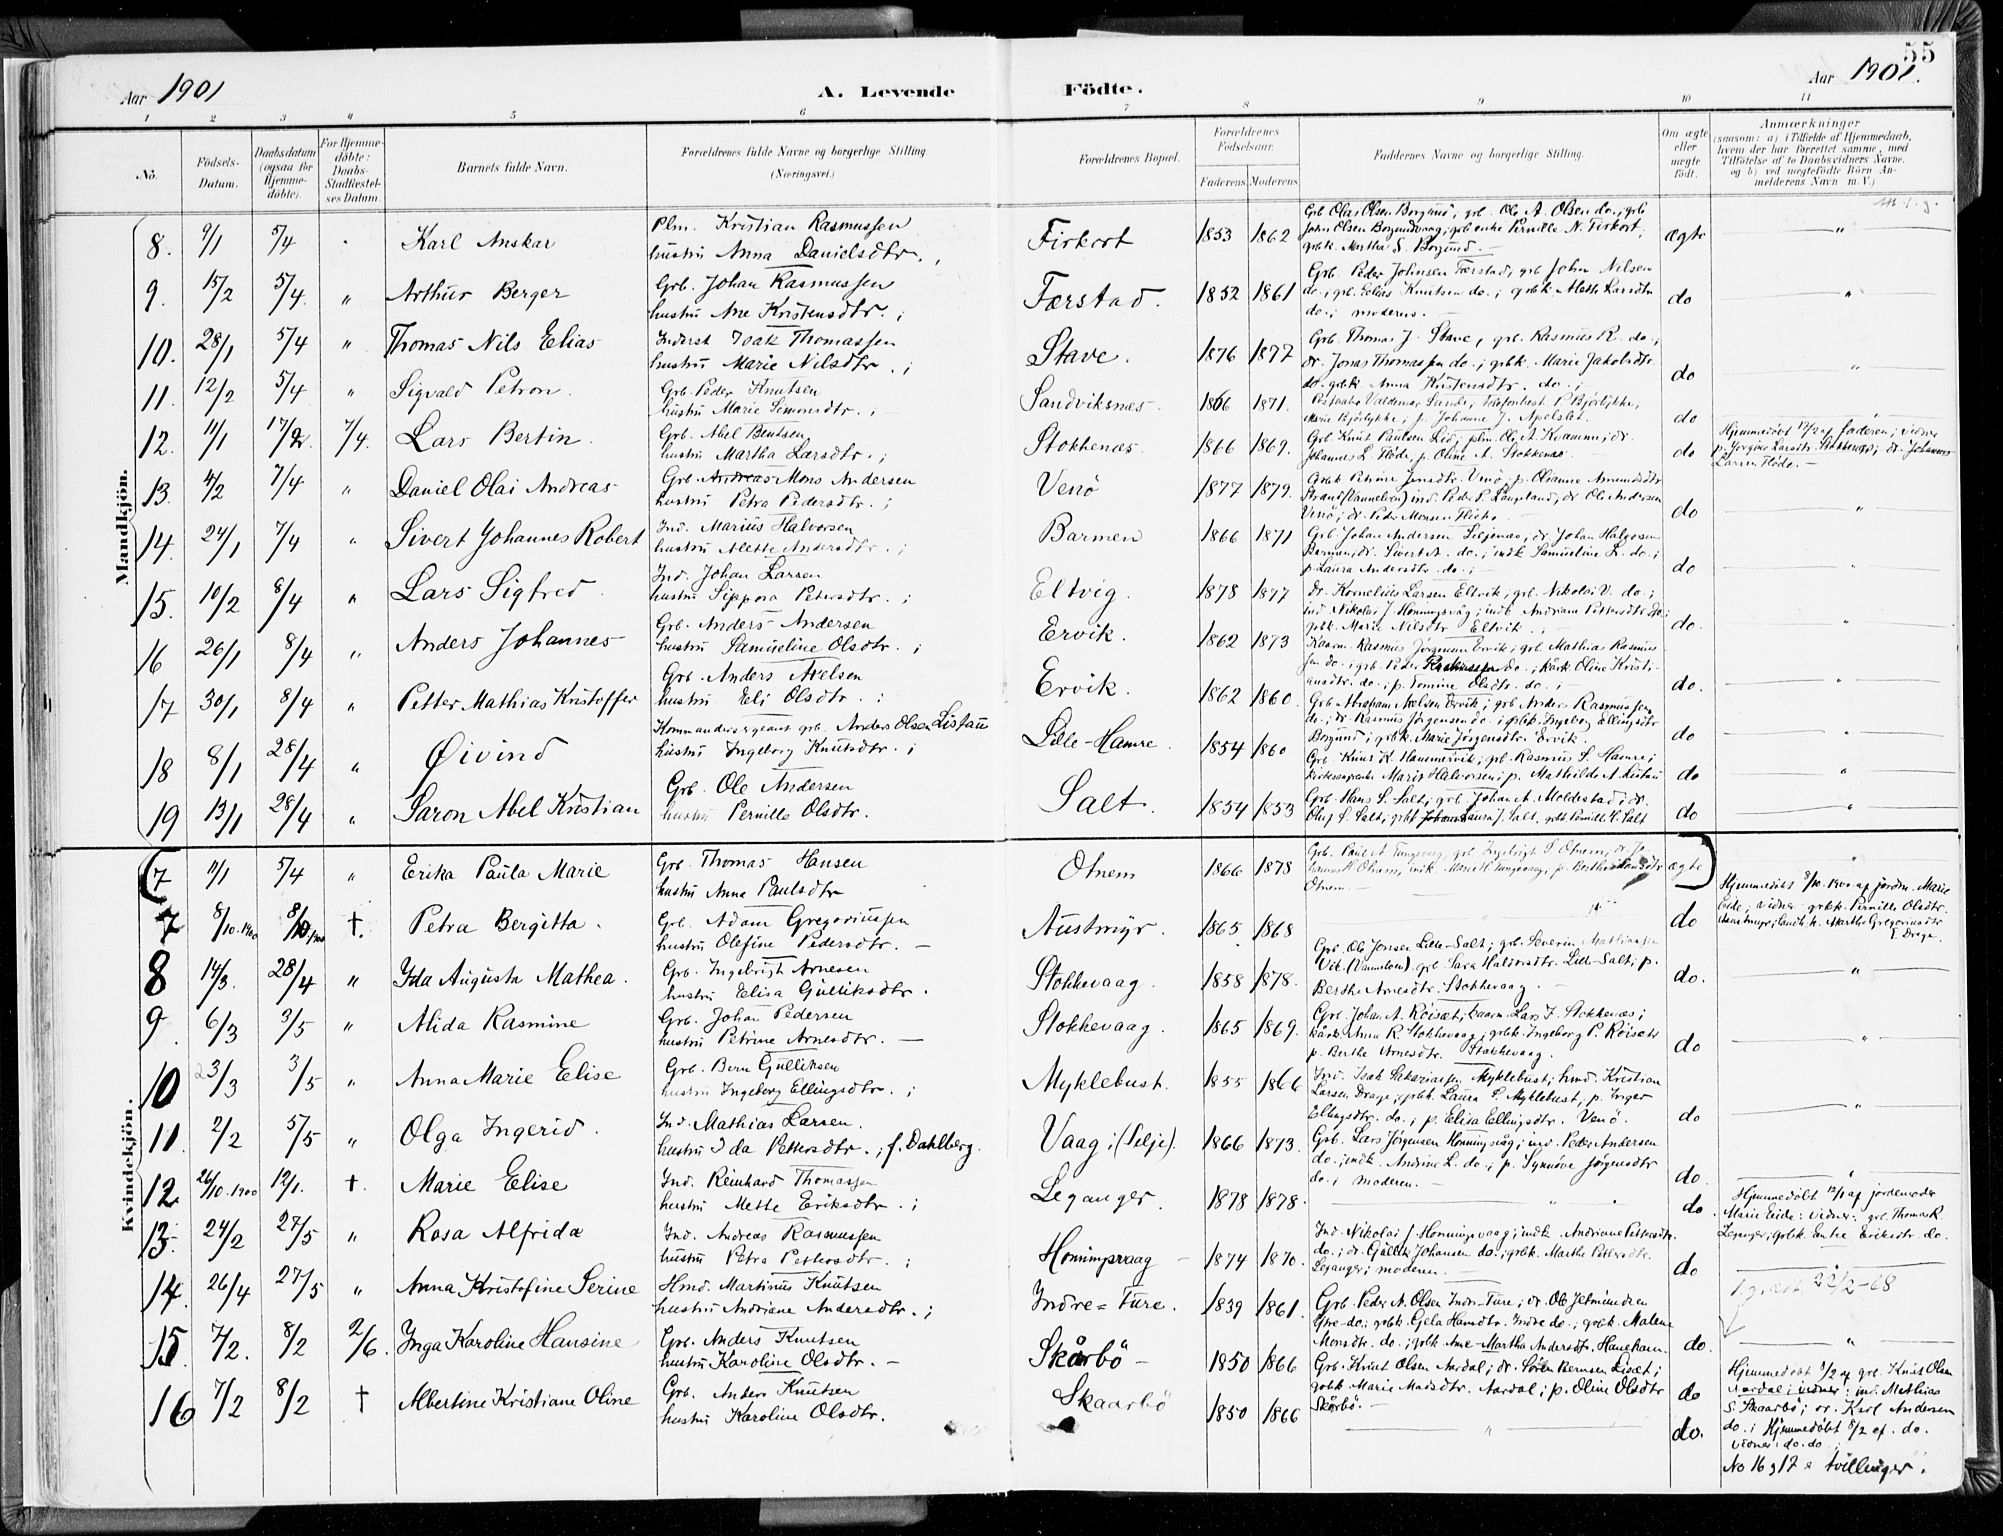 55
Aar 1901
A. Levende Födte.
Aar 1901.
1 2 3 4 5 6 7 8 9 10 11
No.
Födsels-Datum.
Daabsdatum (ogsaa for Hjemmedöbte).
For Hjemmedöbte: Daabs-Stadfæstelses Datum
Barnets fulde Navn.
Forældrenes fulde Navne og borgerlige Stilling (Næringsvei.)
Forældrenes Bopæl.
Forældrenes Födselsaar.
Faderens Moderens
Faddernes Navne og borgerlige Stilling.
Om ægte eller uægte födt.
Anmærkninger
(saasom: a) i Tilfælde af Hjemmedaab,
hvem der har forrettet samme, med
Tilföielse af to Daabsvidners Navne.
og b) ved uægtefödte Börn An-
melderens Navn m. V.)
Mandkjön.
8. 9/1 5/4 Karl Anskar
Plm. Kristian Rasmussen
hustru Anna Danielsdtr.
Firkort 1853 1862
Grb Olai Olsen Borgund; grb. Ole A. Olsen do.; grb
John Olsen Borgundvaag; grb enke Pernille N. Firkort,
grbk. Martha S. Borgund.
ægte "
9. 15/2 5/4 " Arthur Berger
Grb. Johan Rasmussen
hustru Ane Kristensdtr.;
Færstad. 1852 1861
Grb. Peder Johnsen Færstad; grb John Nilsen
do.; grb. Elias Knutsen do.; grbk. Alette Larsdtr
do.; moderen.
do "
10. 28/1 5/4 " Thomas Nils Elias
Inderst Isak Thomassen
hustru Marie Nilsdtr.;
Stave. 1876 1877
Grb. Thomas J. Stave, grb. Rasmus R. do.;
dr. Jonas Thomassen do.; grbk. Marie Jakobsdtr
do. grbk. Anna Kristensdtr. do.;
do "
11. 12/2 5/4 " Sigvald Petron.
Grb. Peder Knutsen
hustru Marie Simonsdtr.;
Sandviksnæs. 1866 1871.
Valdemar Sande; P. Bjørlykke;
Marie Bjørlykke; p. Johanne J. Apelset.
do "
12. 11/1 17/2 7/4. Lars Bertin.
Grb. Abel Bentsen
hustru Martha Larsdtr.;
Stokkenæs. 1866 1869.
Grb Knut Paulsen Lid; plm. Ole A. Kvamme; dr.
Johannes L. Flöde, p. Oline A. Stokkenæs
do
Hjemmedöbt 17/2 af faderen; vidner
p. Jorgine Larsdtr. Stokkenæs; dr. Johannes
Larsen Flöde.
13. 4/2 7/4 " Daniel Olai Andreas
Grb. Andreas Mons Andersen
hustru Petra Pedersdtr.;
Venö 1877 1879.
Grbk Petrine Jensdtr. Venö; p. Olianne Amundsdtr
Strand (Vannelven) ind. Peder P. Langeland, dr Ole Andersen
Venö; dr. Peder Monsen
do "
14. 24/1 7/4 " Sivert Johannes Robert
Ind. Marius Halvorsen
hustru Alette Andersdtr.;
Barmen 1866 1871
Grb Johan Andersen Siljenæs; dr. Johan Halvorsen
Barmen; dr. Sivert A. do.; indk Samueline L. do.;
p. Laura Andersdtr. do.;
do
15. 10/2 8/4 " Lars Sigfred.
Ind. Johan Larsen
hustru Sippora Petersdtr.;
Eltvig. 1878 1877
dr. Kornelius Larsen Eltvik; grb. Nikolai V. do.;
ind Nikolai J. Honningsvåg; indk Andriane Pettersdtr do.;
grbk. Marie Nilsdtr Eltvik.;
do. "
16 26/1 8/4 " Anders Johannes
Grb. Anders Andersen
hustru Samueline Olsdtr.;
Ervik. 1862 1873
Kaarm Rasmus Jörgensen Ervik; grb Mathias Rasmus-
sen do.; grb. Peder Rasmussen do.; kårk. Oline Kristi-
ansdtr. do.; p. Tomine Olsdtr. do.;
do. "
17 30/1 8/4 " Petter Mathias Kristoffer
Grb. Anders Axelsen
hustru Eli Olsdtr.;
Ervik. 1862 1860.
Grb Abraham Axelsen Ervik; grb Anders Rasmussen
do.; dr. Rasmus Jörgensen do.; p. Ingeborg Ellingsdtr
Borgund; grbk. Marie Jörgensdtr. Ervik.
do "
18 8/1 28/4 " Øivind
Kommandersergeant grb. Anders Olsen Listau
hustru Ingeborg Knutsdtr.;
Lille-Hamre. 1854 1860
Grb. Knut K. Hammervik; grb Rasmus S. Hamre;
Marit Halvorsen; p. Mathilde A. Listau
do "
19 13/1 28/4 " Saron Abel Kristian
Grb. Ole Andersen
hustru Pernille Olsdtr.
Salt. 1854 1853
Grb. Hans S. Salt; grb Johan A. Moldestad; dr.
Oluf S. Salt; grbk Laura J. Salt, grbk Pernille H. Salt
do "
Kvindekjön.
(7 11/1 5/4 " Erika Paula Marie
Grb. Thomas Hansen
hustru Anne Paulsdtr
Otnem 1866 1878
Grb. Paul A. Tungevaag, grb Ingebrigt S Otnem; dr. Jo-
hannes H. Otnem, indk. Marie H Tungevaag, p. Berthe Hansdtr
Otnem.
ægte) "
7 8/10.1900 8/10 1900 †. Petra Bergitta.
Grb. Adam Gregoriussen
hustru Olefine Pedersdtr.
Austmyr. 1865 1868
"
do
Hjemmedöbt 8/10.1900 af jordm. Marie
Eide; vidner grbk. Pernille Olsdtr.
Austmyr; Martha Gregoriusdtr
Drage.
8 14/3. 28/4 " Ida Augusta Mathea.
Grb. Ingebrigt Arnesen
hustru Elisa Gulliksdtr.
Stokkevaag. 1858 1878.
Grb. Ole Jonsen Lille-Salt; grb. Severin Mathiassen
Vik (Vannelven) grb Sara Haldorsdtr. Lille-Salt; p.
Berthe Arnesdtr. Stokkevaag.
do. "
9 6/3 3/5 " Alida Rasmine
Grb. Johan Pedersen
hustru Petrine Arnesdtr.
Stokkevaag. 1865 1869.
Grb. Johan A. Röisæt; kaarm Lars J. Stokkenæs;
kårk Anna R. Stokkevaag; grbk. Ingeborg P. Röisæt
p. Berthe Arnesdtr. Stokkevaag.
do "
10 23/3 3/5 " Anna Marie Elise
Grb. Bern Gulliksen
hustru Ingeborg Ellingsdtr.;
Myklebust. 1855 1866
Ind. Isak Sakariassen Myklebust; hmd. Kristian
Larsen Drage; grbk. Laura S. Myklebust; p. Inger
Ellingsdtr. do.; p. Elisa Ellingsdtr. Venö.
do "
11. 2/2 5/5 " Olga Ingerid.
Ind. Mathias Larsen.
hustru Ida Pettersdtr.; f. Dahlberg.
Vaag; (Selje). 1866 1873.
Grb. Lars Jörgensen Honningsvåg; ind. Peder Andersen
do.; indk. Andrine L. do.; p. Synnöve Jörgensdtr
do.; moderen.
do. "
12 26/10.1900 12/1. †. Marie Elise
Ind. Reinhard Thomassen
hustru Mette Eriksdtr.;
Leganger. 1878 1878.
"
do.
Hjemmedöbt 12/1 af jordemoder
Marie Eide: vidner: grb. Thomas R.
Leganger; grbk. Eriksdtr. do.
13. 24/2 27/5 " Rosa Alfrida
Ind. Andreas Rasmussen
hustru Petra Pettersdtr.;
Honningsvaag 1874 1870.
Ind. Nikolai J. Honningsvaag; indk. Andriane Pettersdtr.
do.; dr. Gullik Johansen do.; grbk. Marthe Pettersdtr.
Leganger; moderen.
do "
14. 26/4 27/5 " Anna Kristofine Serine
Hmd. Martinus Knutsen
hustru Andriane Andersdtr.;
Indre-Fure. 1839 1861.
Grb. Peder A. Olsen Indre-Fure; dr. Ole Jetmundsen
Ytre-do; grbk. Gela Hansdtr. Indre do.; grbk. Malene
Monsdtr. do.; grbk. Ane-Martha Andersdtr. Hanekam.
do.
22/2-68
15 7/2. 8/2 2/6. Inga Karoline Hansine
Grb. Anders Knutsen
hustru Karoline Olsdtr.
Skårbö 1850 1866
Grb. Knut Olsen Aardal; dr. Sören Berntsen Liset;
grbk. Marie Madsdtr. Aardal; p. Oline Olsdtr
Skårbö.
do
Hjemmedöbt 8/2 af grb. Knut Olsen
Aardal; vidner: ind. Mathias
S. Skaarbö; dr. Karl Andersen
do.;
16 7/2 8/2 † Albertine Kristiane Oline
Grb. Anders Knutsen
hustru Karoline Olsdtr.
Skaarbö 1850 1866
"
do.
Hjemmedöbt 8/2 af. do.
vidner: do. do.
No 16 g 17 e tvillinger.